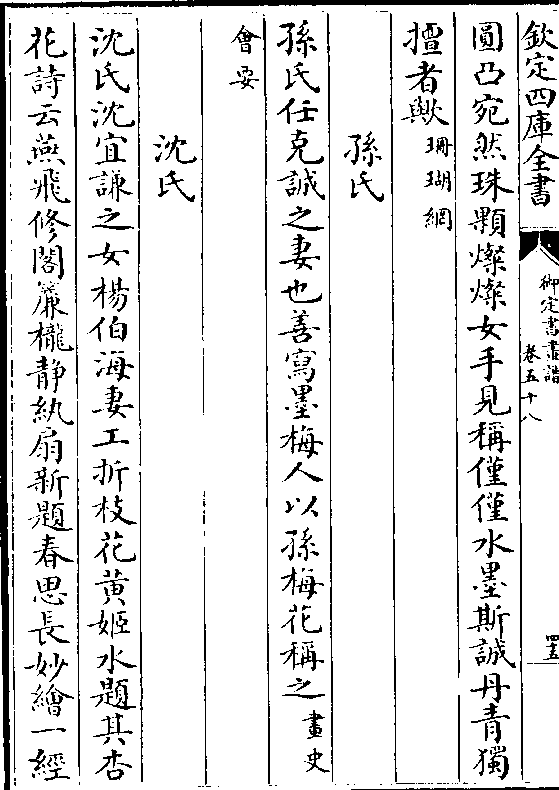 欽定四庫全書
御定書畫譜
卷五十八
四五
圓凸宛然珠顆燦燦女手見稱僅僅水墨斯誠丹青獨
擅者歟珊瑚網
孫氏
孫氏任克誠之妻也善寫墨梅人以孫梅花稱之畫史
會要
沈氏
沈氏沈宜謙之女楊伯海妻工折枝花黃姬水題其杏
花詩云燕飛修閣簾櫳靜紈扇新題春思長妙繪一經